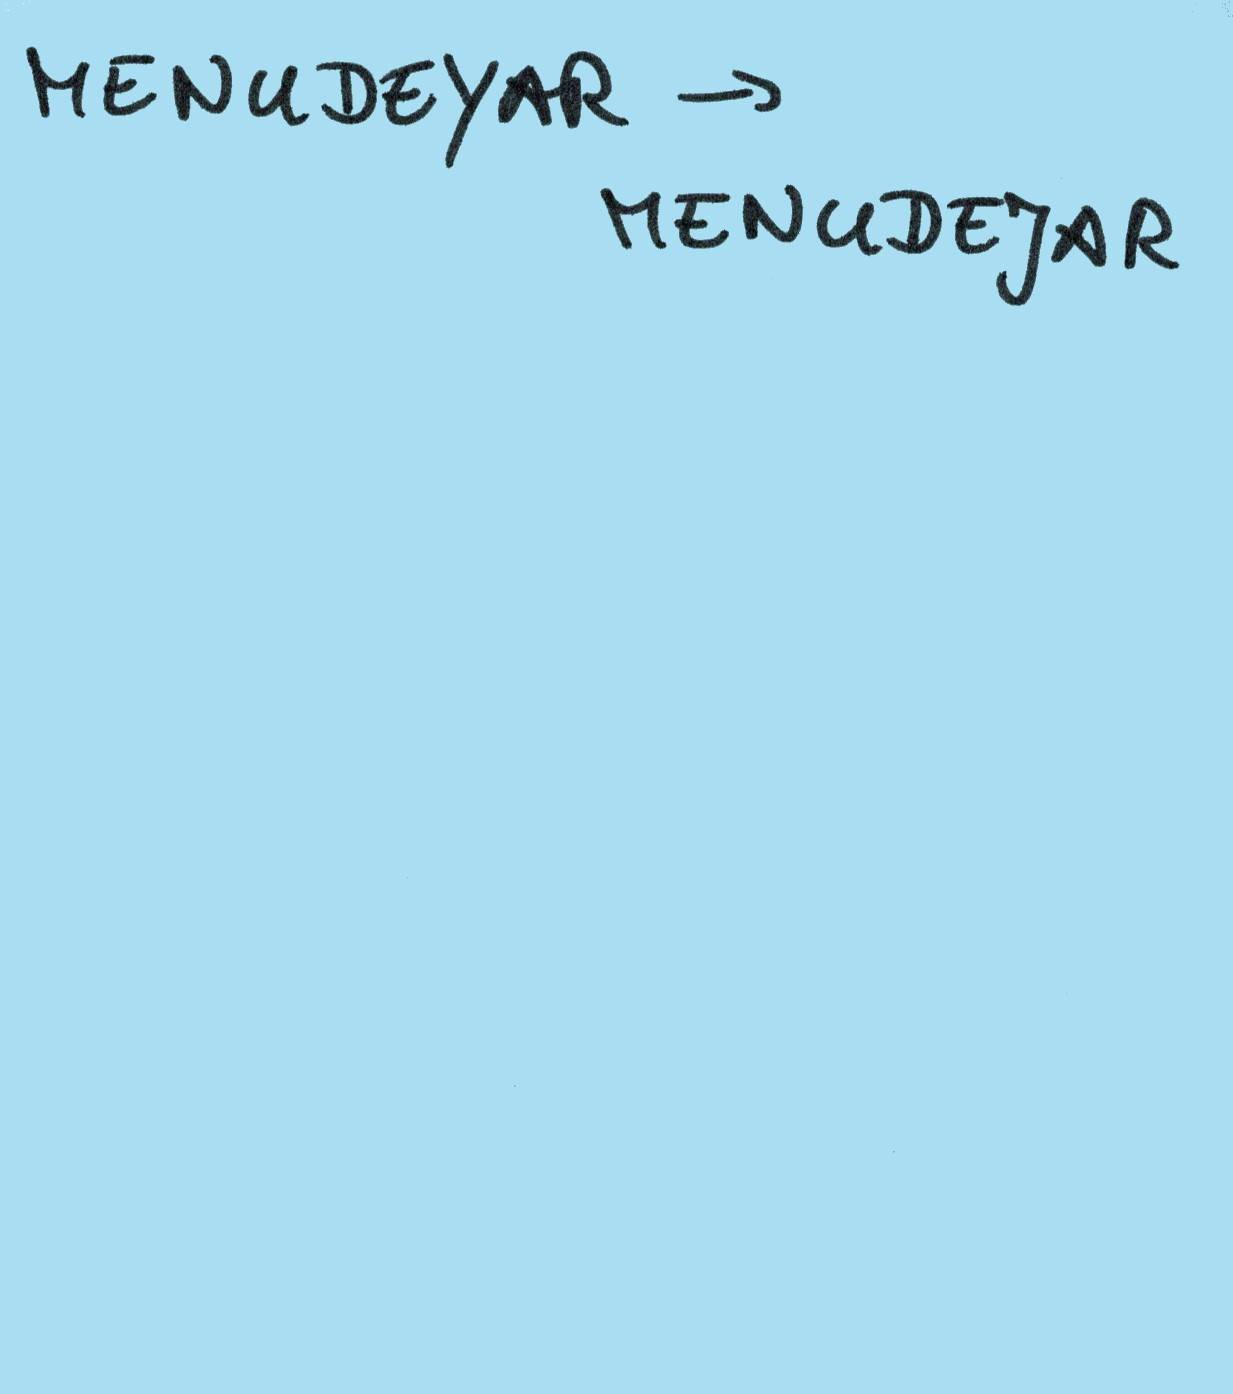 MENUDEYAR →
MENUDEJAR